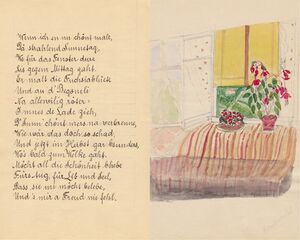 Wenn ich en nu chönt male,
Dä strahlend Sunnetag,
Wo für das Fenster dure
Lis gegem Mittag gaht.
Er malt die Fuchsiablüete
Und au d'Begoneli
Na allewilig röter
I mues de Lade zieh,
S'chunn chönt mers na verbrenne,
Wie wär das doch so schad,
Und jetzt im Herbst gar bsunders,
Wos bald zum Welke gaht.
Möcht all die Schönheit bhebe
Fürs Aug, für Leb und Seel,
Dass sie mi möcht belebe,
Und s mir a Freud nie fehl.